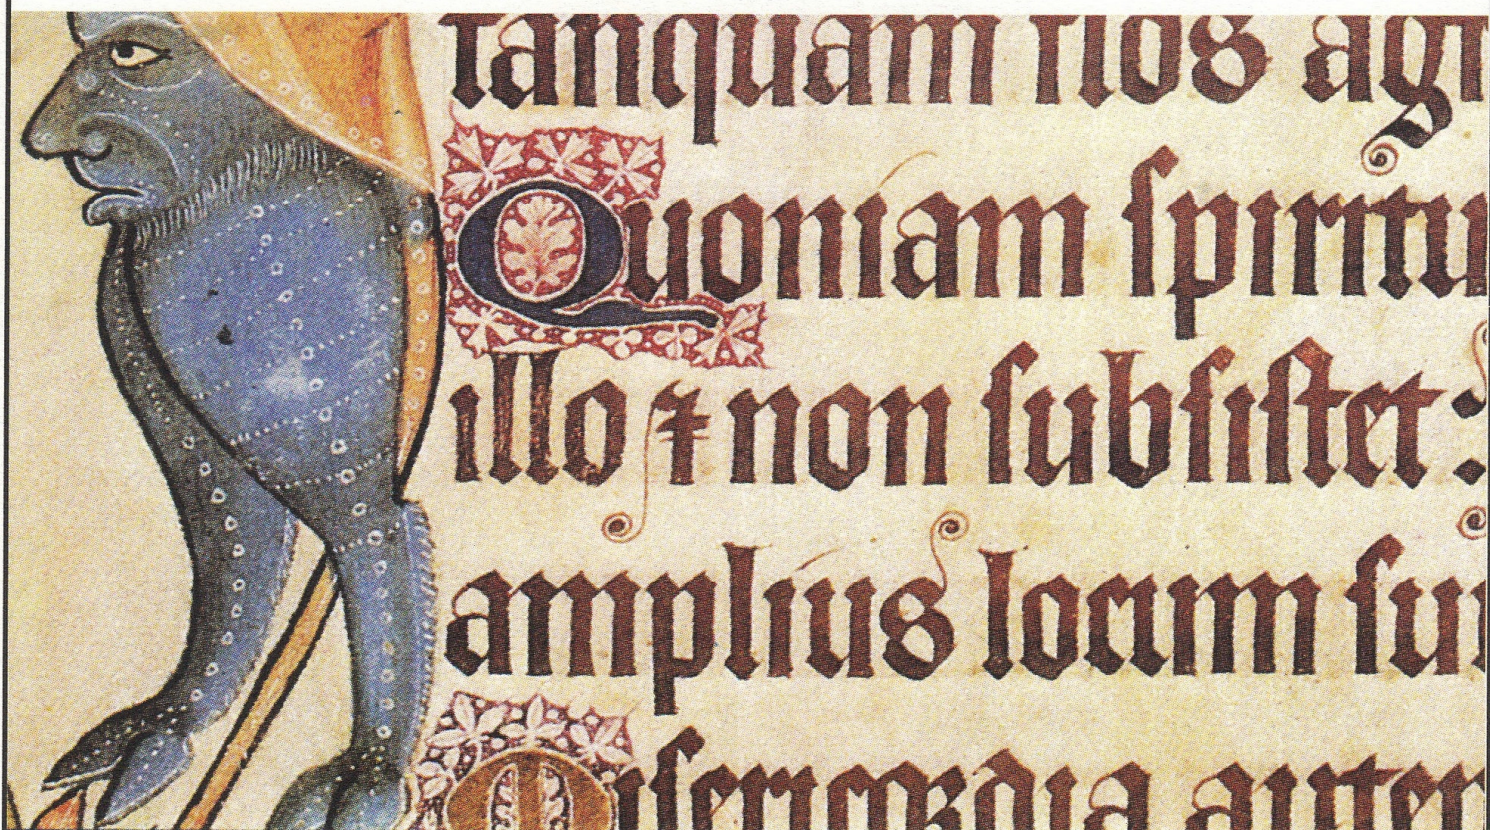 tanquam flos agr
Quoniam ſpiritu
illo ⁊ non ſubſiſtet:
amplius locum ſuu
Miſericordia autem